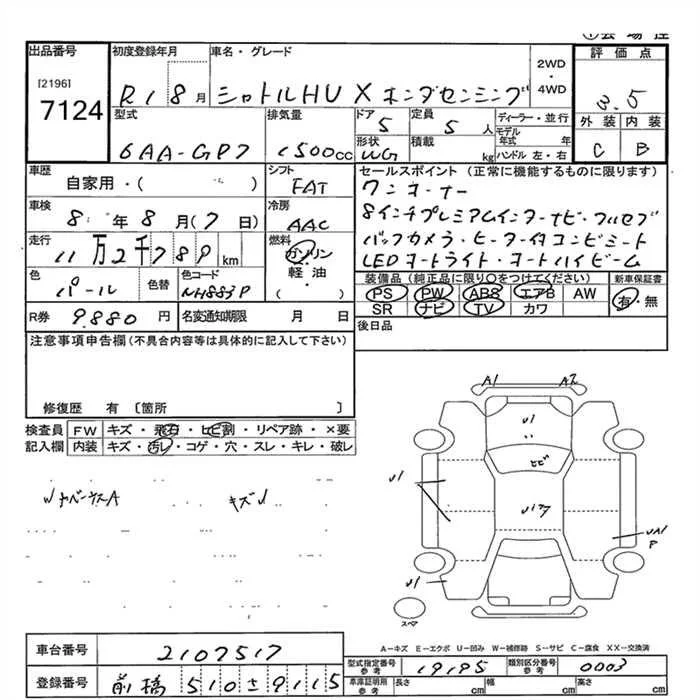 出品番号
[2196]
7124
初度登録年月
R1 8月
車名・グレード
シャトルHV X ホンダセンシング
2WD
4WD
評価点
3.5
外装 内装
C B
型式
6AA-GP7
排気量
1500cc
ドア
5
定員
5人
形状
WG
積載
kg
ディーラー・並行
モデル年式 年
ハンドル 左・右
車歴
自家用・( )
シフト
FAT
車検
8年8月(7日)
冷房
AAC
走行
11万2千789km
燃料
ガソリン
軽・油
( )
色
パール
色替
色コード
NH883P
R券 9.880円
名変通知期限 月 日
セールスポイント(正常に機能するものに限ります)
ワンオーナー
8インチプレミアムインターナビ・フルセブ
バックカメラ・ヒーター付コンビシート
LEDオートライト・オートハイビーム
装備品(純正品に限り○をつけてください)
新車保証書
PS PW ABS エアB AW
有・無
SR ナビ TV カワ
後日品
注意事項申告欄(不具合内容等は具体的に記入して下さい)
修復歴 有 〔箇所 〕
検査員記入欄
FW キズ・飛石・ヒビ割・リペア跡・×要
内装 キズ・汚レ・コゲ・穴・スレ・キレ・破レ
キズU
A1 A2
U1
ヒビ
U1
U1
UA1
P
U1
スペア
A-キズ E-エクボ U-凹み W-補修跡 S-サビ C-腐食 XX-交換済
車台番号 2107517
登録番号 前橋 510 さ 9115
型式指定番号 参考 19195
類別区分番号 参考 0003
車庫証明用 参考 長さ cm 幅 cm 高さ cm